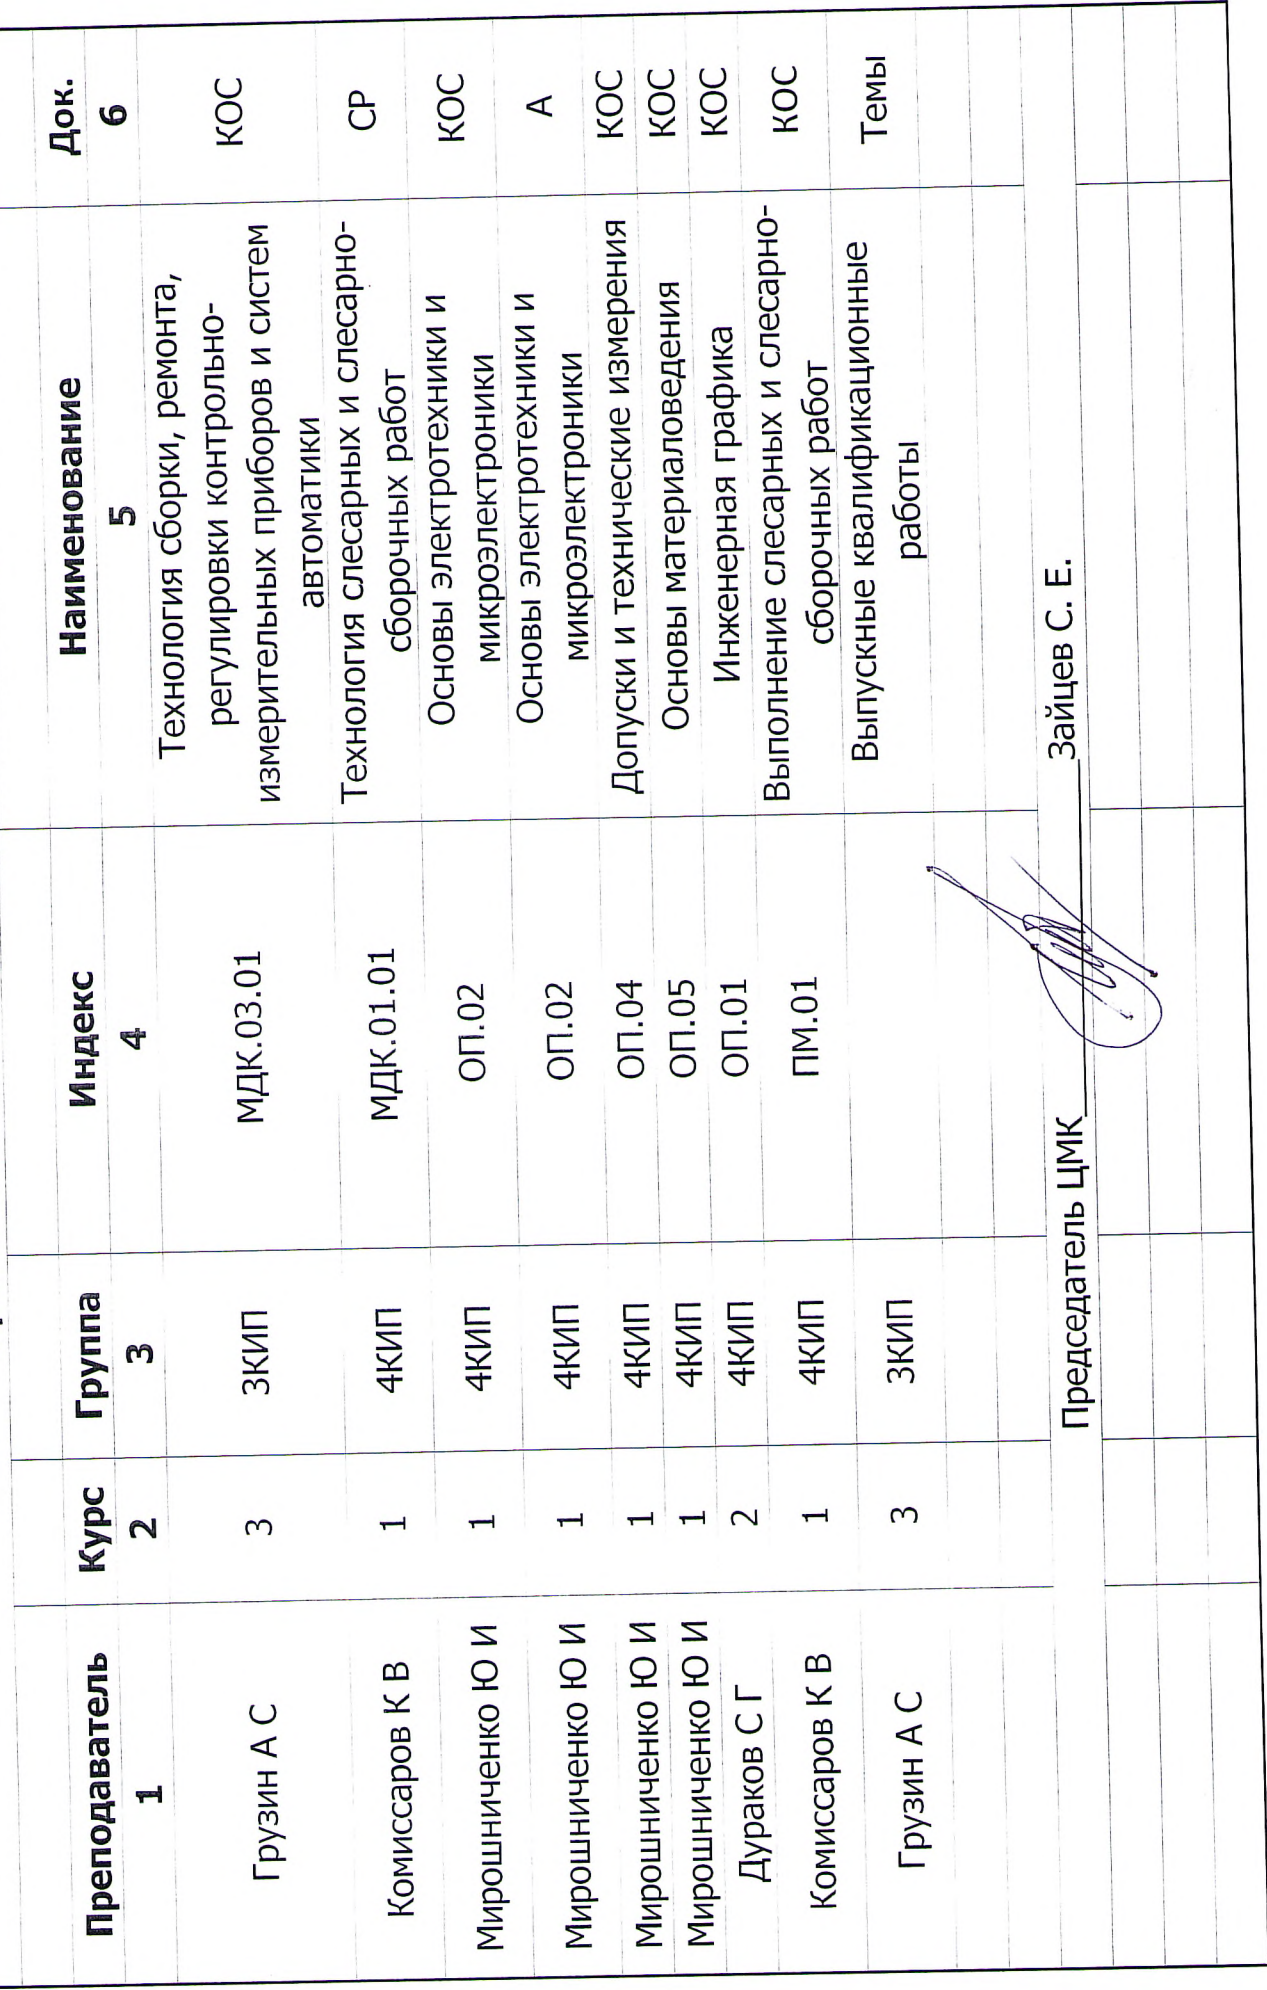 Преподаватель Курс Группа Индекс Наименование Док.
1 2 3 4 5 6
Грузин А С 3 3КИП МДК.03.01 Технология сборки, ремонта,
регулировки контрольно-
измерительных приборов и систем
автоматики КОС
Комиссаров К В 1 4КИП МДК.01.01 Технология слесарных и слесарно-
сборочных работ СР
Мирошниченко Ю И 1 4КИП ОП.02 Основы электротехники и
микроэлектроники КОС
Мирошниченко Ю И 1 4КИП ОП.02 Основы электротехники и
микроэлектроники А
Мирошниченко Ю И 1 4КИП ОП.04 Допуски и технические измерения КОС
Мирошниченко Ю И 1 4КИП ОП.05 Основы материаловедения КОС
Дураков С Г 2 4КИП ОП.01 Инженерная графика КОС
Комиссаров К В 1 4КИП ПМ.01 Выполнение слесарных и слесарно-
сборочных работ КОС
Грузин А С 3 3КИП Выпускные квалификационные
работы Темы
Председатель ЦМК Зайцев С. Е.